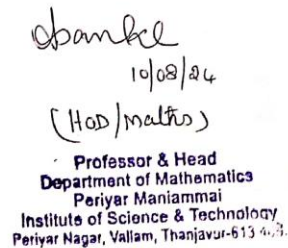 10/08/24
(HOD/Maths)
Professor & Head
Department of Mathematics
Periyar Maniammai
Institute of Science & Technology
Periyar Nagar, Vallam, Thanjavur-613